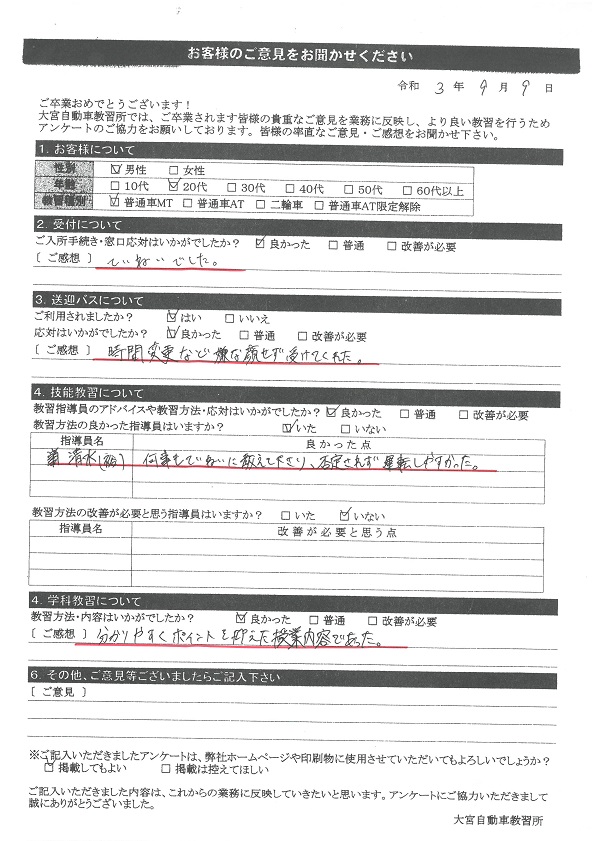 お客様のご意見をお聞かせください
令和 3 年 9 月 9 日
ご卒業おめでとうございます！
大宮自動車教習所では、ご卒業されます皆様の貴重なご意見を業務に反映し、より良い教習を行うため
アンケートのご協力をお願いしております。皆様の率直なご意見・ご感想をお聞かせ下さい。
1. お客様について
性別 ☑男性 □女性
年齢 □10代 ☑20代 □30代 □40代 □50代 □60代以上
教習種別 ☑普通車MT □普通車AT □二輪車 □普通車AT限定解除
2. 受付について
ご入所手続き・窓口応対はいかがでしたか？ ☑良かった □普通 □改善が必要
〔 ご感想 〕 ていねいでした。
3. 送迎バスについて
ご利用されましたか？ ☑はい □いいえ
応対はいかがでしたか？ ☑良かった □普通 □改善が必要
〔 ご感想 〕 時間変更など嫌な顔せず受けてくれた。
4. 技能教習について
教習指導員のアドバイスや教習方法・応対はいかがでしたか？ ☑良かった □普通 □改善が必要
教習方法の良かった指導員はいますか？ ☑いた □いない
指導員名 良かった点
菊 清水 何事もていねいに教えて下さり、否定されず運転しやすかった。
教習方法の改善が必要と思う指導員はいますか？ □いた ☑いない
指導員名 改善が必要と思う点
4. 学科教習について
教習方法・内容はいかがでしたか？ ☑良かった □普通 □改善が必要
〔 ご感想 〕 分かりやすくポイントを抑えた授業内容であった。
6. その他、ご意見等ございましたらご記入下さい
〔 ご意見 〕
※ご記入いただきましたアンケートは、弊社ホームページや印刷物に使用させていただいてもよろしいでしょうか？
☑掲載してもよい □掲載は控えてほしい
ご記入いただきました内容は、これからの業務に反映していきたいと思います。アンケートにご協力いただきまして
誠にありがとうございました。
大宮自動車教習所